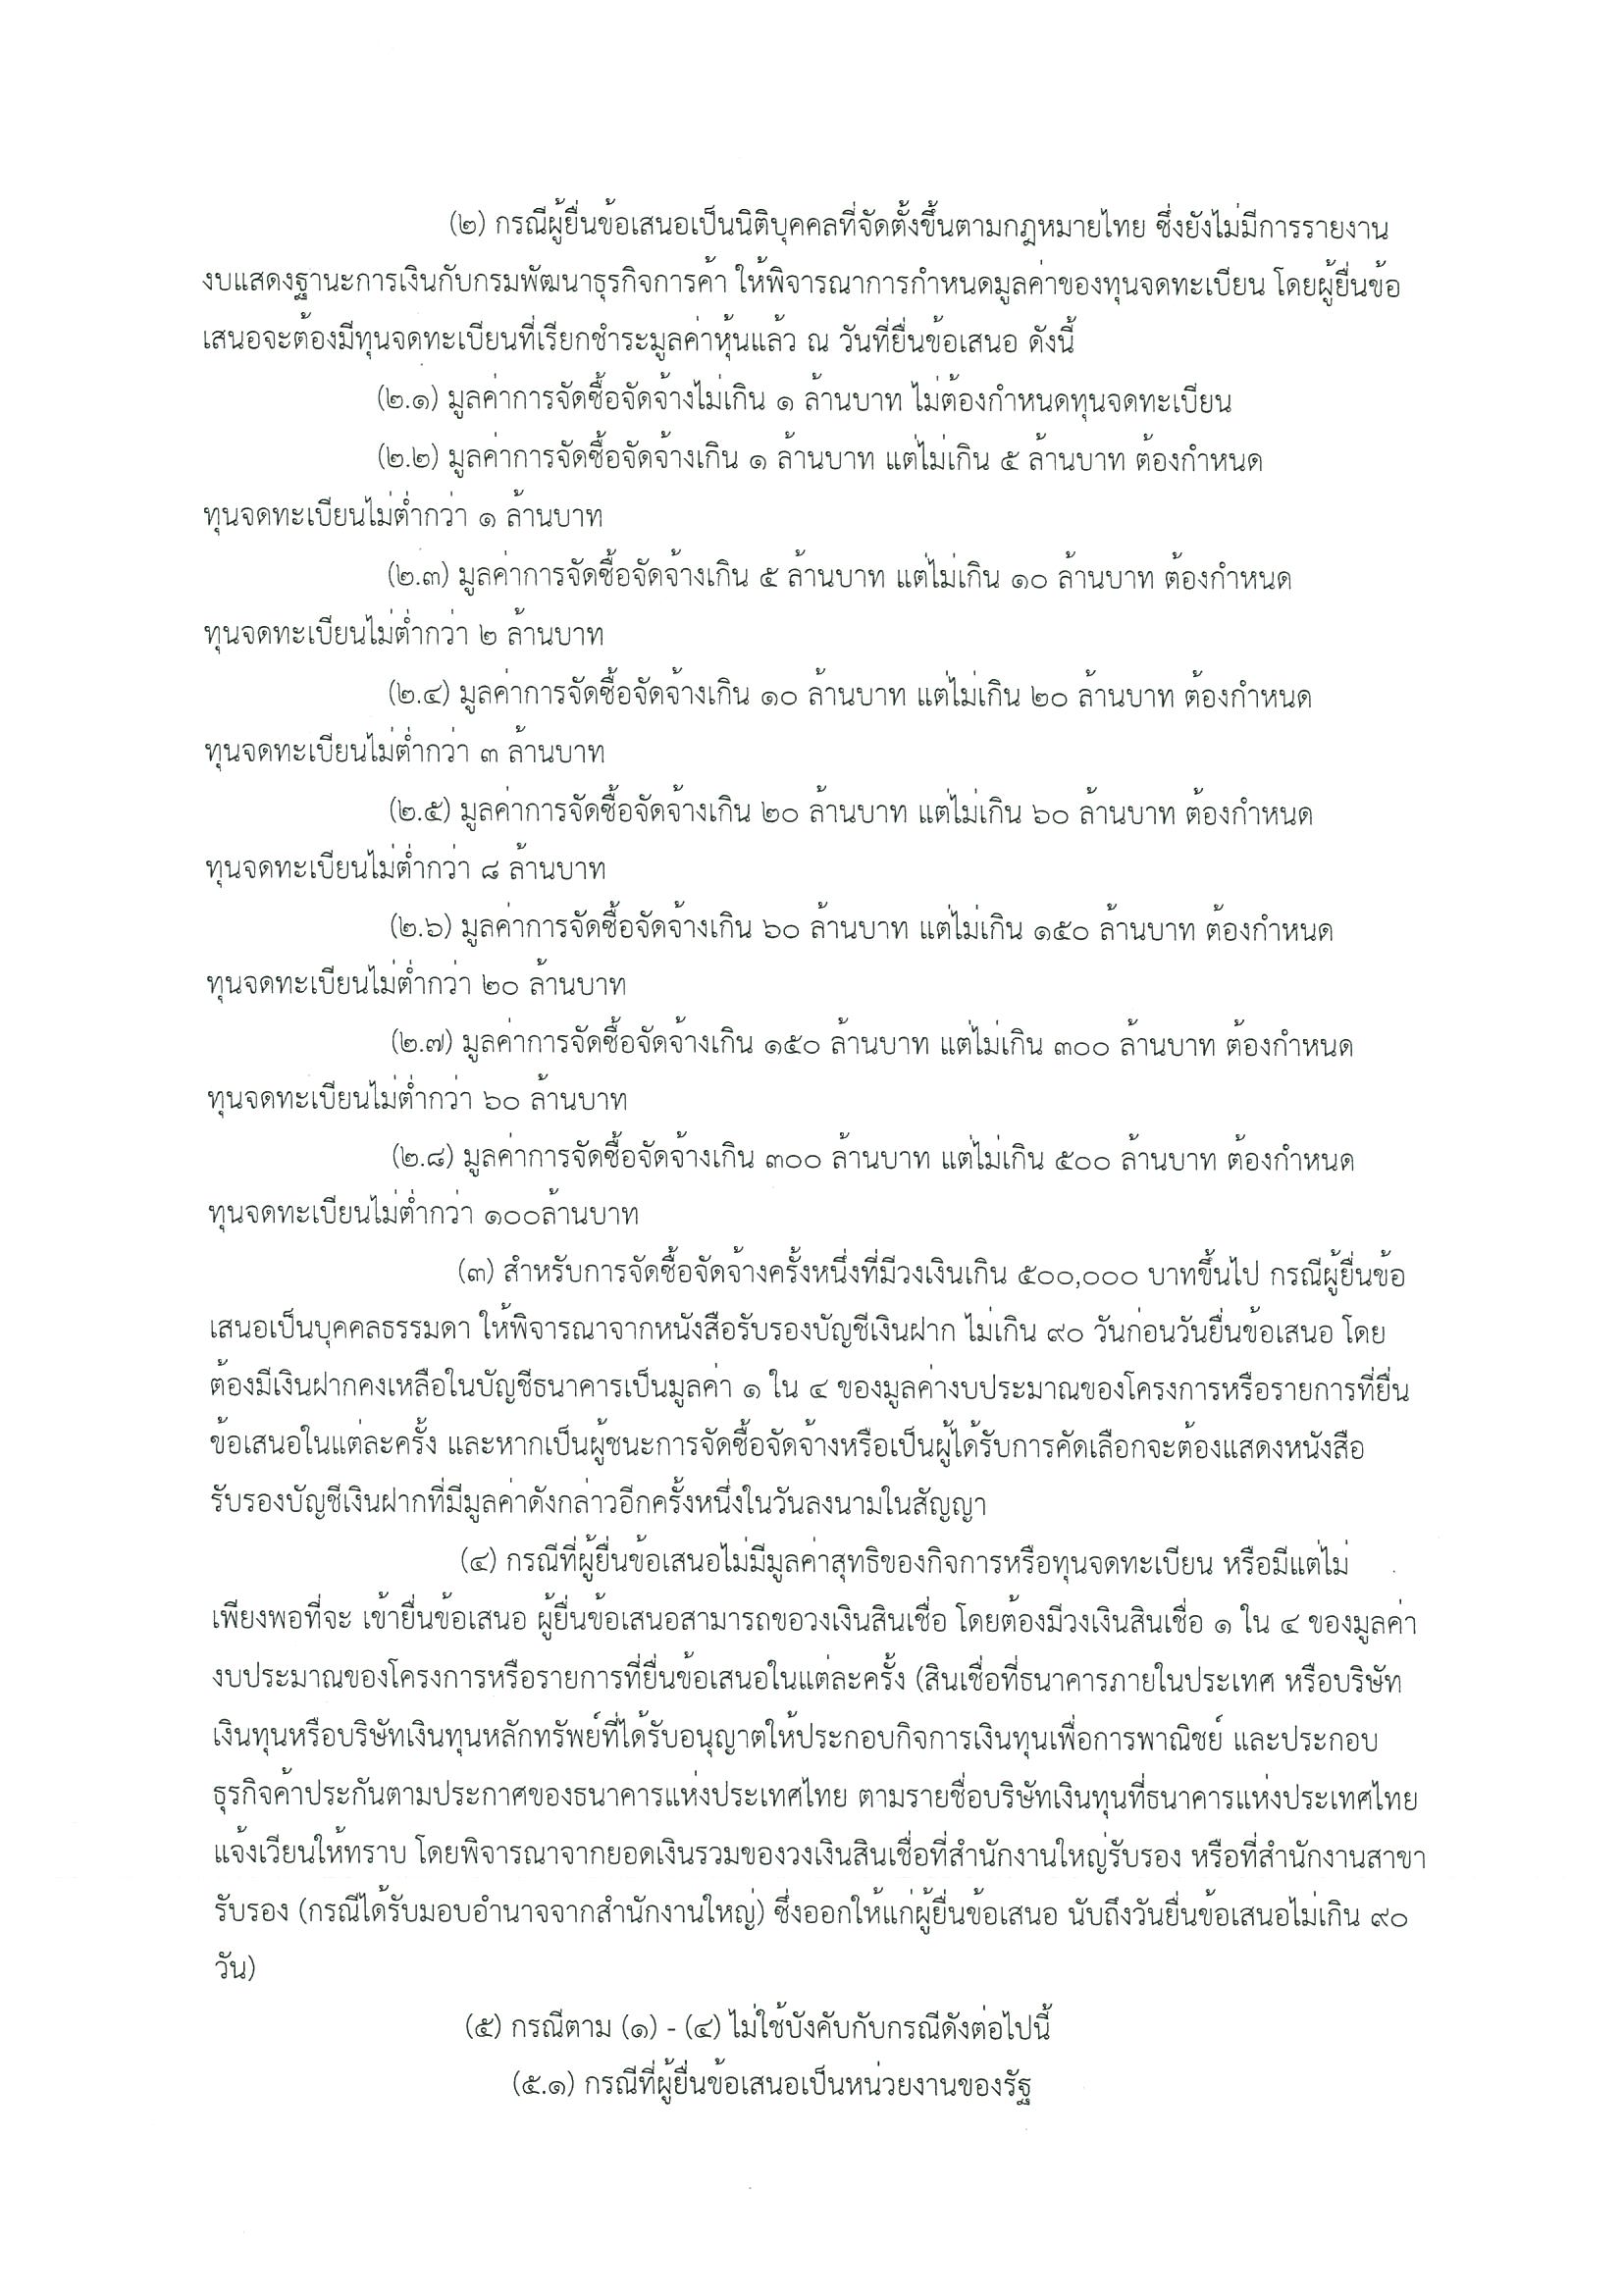 (๒) กรณีผู้ยื่นข้อเสนอเป็นนิติบุคคลที่จัดตั้งขึ้นตามกฎหมายไทย ซึ่งยังไม่มีการรายงาน
งบแสดงฐานะการเงินกับกรมพัฒนาธุรกิจการค้า ให้พิจารณาการกำหนดมูลค่าของทุนจดทะเบียน โดยผู้ยื่นข้อ
เสนอจะต้องมีทุนจดทะเบียนที่เรียกชำระมูลค่าหุ้นแล้ว ณ วันที่ยื่นข้อเสนอ ดังนี้
(๒.๑) มูลค่าการจัดซื้อจัดจ้างไม่เกิน ๑ ล้านบาท ไม่ต้องกำหนดทุนจดทะเบียน
(๒.๒) มูลค่าการจัดซื้อจัดจ้างเกิน ๑ ล้านบาท แต่ไม่เกิน ๕ ล้านบาท ต้องกำหนด
ทุนจดทะเบียนไม่ต่ำกว่า ๑ ล้านบาท
(๒.๓) มูลค่าการจัดซื้อจัดจ้างเกิน ๕ ล้านบาท แต่ไม่เกิน ๑๐ ล้านบาท ต้องกำหนด
ทุนจดทะเบียนไม่ต่ำกว่า ๒ ล้านบาท
(๒.๔) มูลค่าการจัดซื้อจัดจ้างเกิน ๑๐ ล้านบาท แต่ไม่เกิน ๒๐ ล้านบาท ต้องกำหนด
ทุนจดทะเบียนไม่ต่ำกว่า ๓ ล้านบาท
(๒.๕) มูลค่าการจัดซื้อจัดจ้างเกิน ๒๐ ล้านบาท แต่ไม่เกิน ๖๐ ล้านบาท ต้องกำหนด
ทุนจดทะเบียนไม่ต่ำกว่า ๘ ล้านบาท
(๒.๖) มูลค่าการจัดซื้อจัดจ้างเกิน ๖๐ ล้านบาท แต่ไม่เกิน ๑๕๐ ล้านบาท ต้องกำหนด
ทุนจดทะเบียนไม่ต่ำกว่า ๒๐ ล้านบาท
(๒.๗) มูลค่าการจัดซื้อจัดจ้างเกิน ๑๕๐ ล้านบาท แต่ไม่เกิน ๓๐๐ ล้านบาท ต้องกำหนด
ทุนจดทะเบียนไม่ต่ำกว่า ๖๐ ล้านบาท
(๒.๘) มูลค่าการจัดซื้อจัดจ้างเกิน ๓๐๐ ล้านบาท แต่ไม่เกิน ๕๐๐ ล้านบาท ต้องกำหนด
ทุนจดทะเบียนไม่ต่ำกว่า ๑๐๐ล้านบาท
(๓) สำหรับการจัดซื้อจัดจ้างครั้งหนึ่งที่มีวงเงินเกิน ๕๐๐,๐๐๐ บาทขึ้นไป กรณีผู้ยื่นข้อ
เสนอเป็นบุคคลธรรมดา ให้พิจารณาจากหนังสือรับรองบัญชีเงินฝาก ไม่เกิน ๙๐ วันก่อนวันยื่นข้อเสนอ โดย
ต้องมีเงินฝากคงเหลือในบัญชีธนาคารเป็นมูลค่า ๑ ใน ๔ ของมูลค่างบประมาณของโครงการหรือรายการที่ยื่น
ข้อเสนอในแต่ละครั้ง และหากเป็นผู้ชนะการจัดซื้อจัดจ้างหรือเป็นผู้ได้รับการคัดเลือกจะต้องแสดงหนังสือ
รับรองบัญชีเงินฝากที่มีมูลค่าดังกล่าวอีกครั้งหนึ่งในวันลงนามในสัญญา
(๔) กรณีที่ผู้ยื่นข้อเสนอไม่มีมูลค่าสุทธิของกิจการหรือทุนจดทะเบียน หรือมีแต่ไม่
เพียงพอที่จะ เข้ายื่นข้อเสนอ ผู้ยื่นข้อเสนอสามารถขอวงเงินสินเชื่อ โดยต้องมีวงเงินสินเชื่อ ๑ ใน ๔ ของมูลค่า
งบประมาณของโครงการหรือรายการที่ยื่นข้อเสนอในแต่ละครั้ง (สินเชื่อที่ธนาคารภายในประเทศ หรือบริษัท
เงินทุนหรือบริษัทเงินทุนหลักทรัพย์ที่ได้รับอนุญาตให้ประกอบกิจการเงินทุนเพื่อการพาณิชย์ และประกอบ
ธุรกิจค้ำประกันตามประกาศของธนาคารแห่งประเทศไทย ตามรายชื่อบริษัทเงินทุนที่ธนาคารแห่งประเทศไทย
แจ้งเวียนให้ทราบ โดยพิจารณาจากยอดเงินรวมของวงเงินสินเชื่อที่สำนักงานใหญ่รับรอง หรือที่สำนักงานสาขา
รับรอง (กรณีได้รับมอบอำนาจจากสำนักงานใหญ่) ซึ่งออกให้แก่ผู้ยื่นข้อเสนอ นับถึงวันยื่นข้อเสนอไม่เกิน ๙๐
วัน)
(๕) กรณีตาม (๑) - (๔) ไม่ใช้บังคับกับกรณีดังต่อไปนี้
(๕.๑) กรณีที่ผู้ยื่นข้อเสนอเป็นหน่วยงานของรัฐ